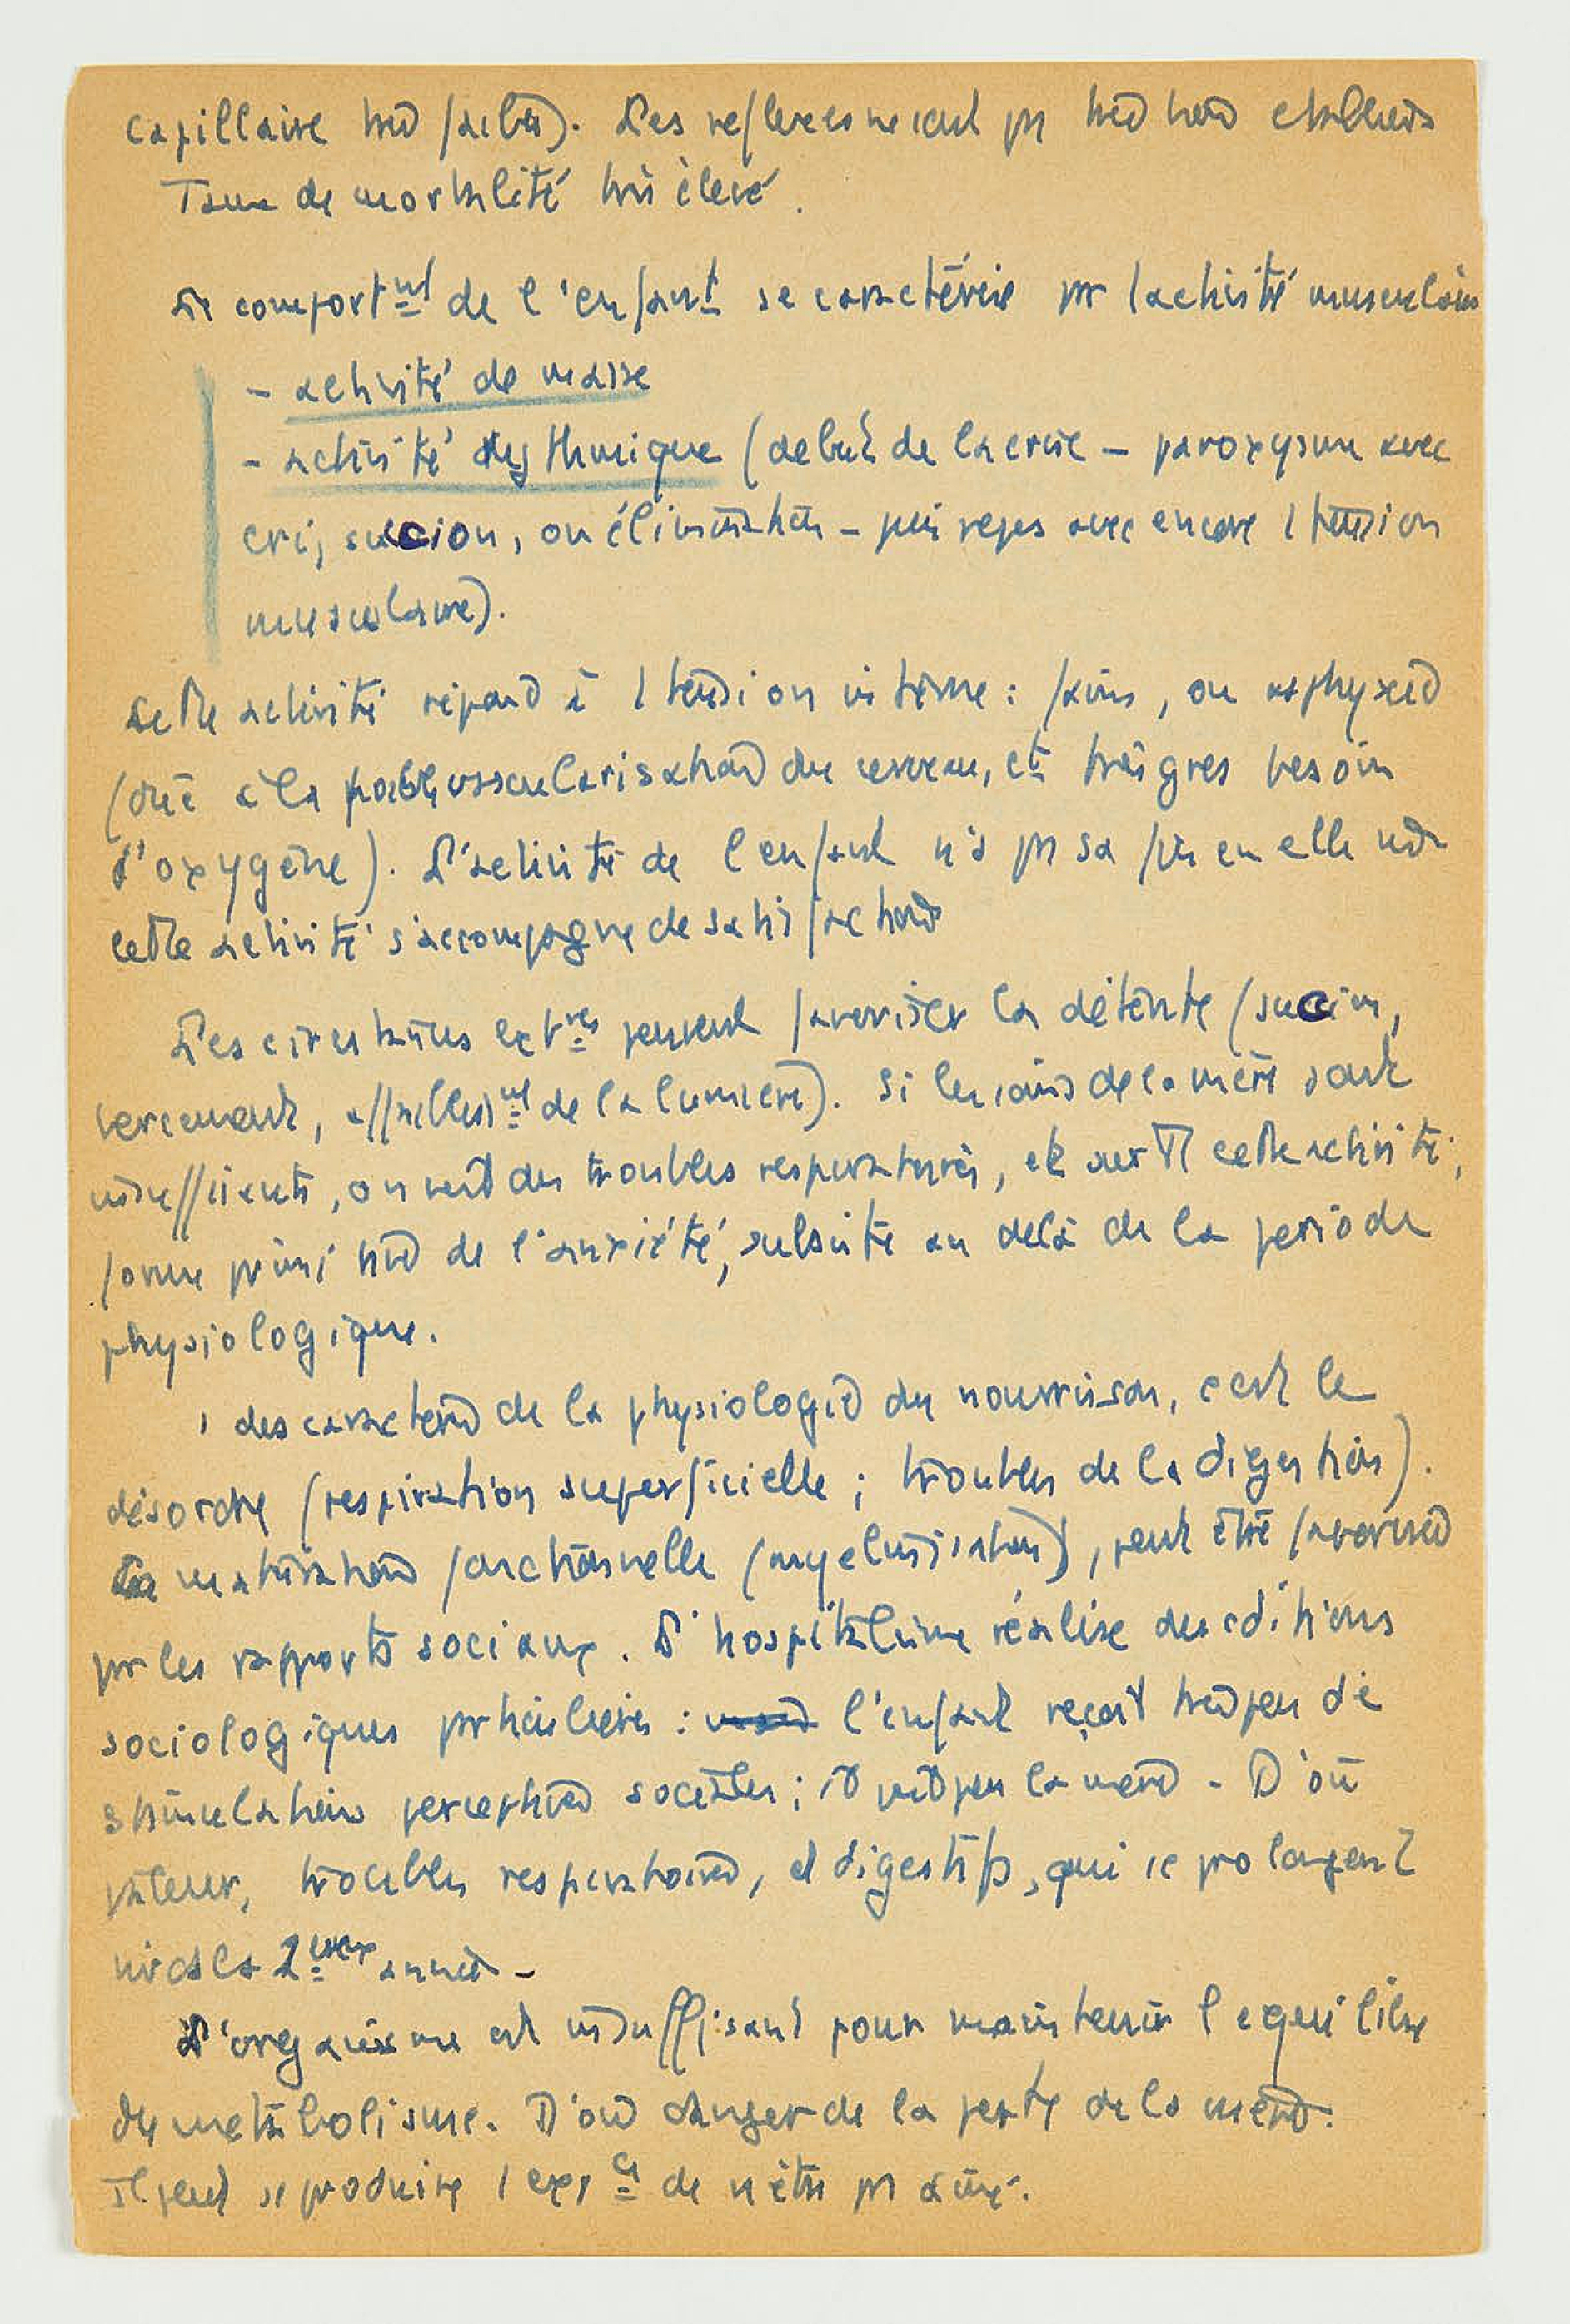 capillaire très faible). Les reflexes ne sont pas très bien etablis
Taux de mortalité très élevé.
Le comportmt de l'enfant se caractérise pr l'activité musculaire
- activité de masse
- activité rythmique (debut de la crise - paroxysme avec
cri, succion, ou élimination - puis repos avec encore 1 tension
musculaire).
Cette activité répond à 1 tension interne : faim, ou asphyxie
(due à la faible vascularisation du cerveau, et très gros besoin
d'oxygène). L'activité de l'enfant n'a pas sa fin en elle
cette activité s'accompagne de satisfaction
Les circonstances extres peuvent favoriser la détente (succion,
bercement, affaiblissmt de de la lumière). Si les soins de la mère sont
insuffisants, on voit des troubles respiratoires, et cette activité,
forme primitive de l'anxiété, subsiste au delà de la période
physiologique.
1 des caractères de la physiologie du nourrisson, c'est le
désordre (respiration superficielle ; troubles de la digestion).
La maturation fonctionnelle (myelinisation), peut être favorisée
pr les rapports sociaux. L'hospitalisme réalise des cditions
sociologiques prticulières : l'enfant reçoit très peu de
stimulations perceptives sociales ; il voit peu la mère - D'où
pâleur, troubles respiratoires, et digestifs, qui se prolongent
ds la 2ème année -
L'organisme est insuffisant pour maintenir l'equilibre
du métabolisme. D'où danger de la perte de la mère.
Il peut se produire 1 expce de n'être pas aimé.